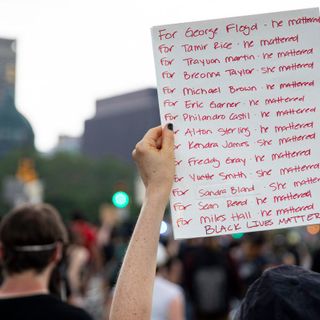 For George Floyd - he mattered
For Tamir Rice - he mattered
For Trayvon martin - he mattered
For Breonna Taylor - She mattered
For Michael Brown - he mattered
For Eric Garner - he mattered
For Philandro Castil - he mattered
For Alton Sterling - he mattered
For Kendra James - She mattered
For Freddy Gray - he mattered
For Yvette Smith - She mattered
For Sandra Bland - She mattered
For Sean Reed - he mattered
For Miles Hall - he mattered
BLACK LIVES MATTER